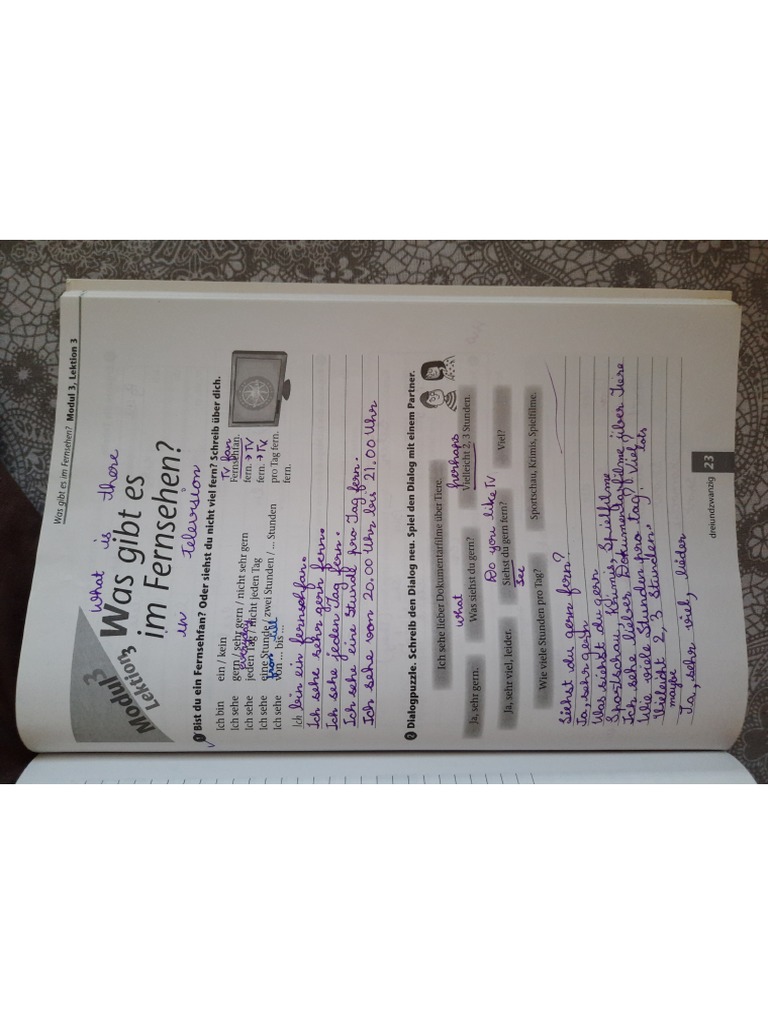 Was gibt es im Fernsehen? Modul 3, Lektion 3
Modul 3
Lektion 3
What is there
Was gibt es
im Fernsehen?
in Television
1 Bist du ein Fernsehfan? Oder siehst du nicht viel fern? Schreib über dich.
TV fan
Ich bin ein / kein Fernsehfan.
Ich sehe gern / sehr gern / nicht sehr gern fern. → TV
everyday
Ich sehe jeden Tag / nicht jeden Tag fern. → TV
Ich sehe eine Stunde / zwei Stunden / ... Stunden pro Tag fern.
from till
Ich sehe von ... bis ... fern.
Ich bin ein fernsehfan.
Ich sehe sehr gern fern.
Ich sehe jeden Tag fern.
Ich sehe eine Stunde pro Tag fern.
Ich sehe von 20.00 Uhr bis 21.00 Uhr
2 Dialogpuzzle. Schreib den Dialog neu. Spiel den Dialog mit einem Partner.
Ich sehe lieber Dokumentarfilme über Tiere.
what perhaps
Ja, sehr gern. Was siehst du gern? Vielleicht 2, 3 Stunden.
Do you like TV
Ja, sehr viel, leider. Siehst du gern fern? Viel?
See
Wie viele Stunden pro Tag? Sportschau, Krimis, Spielfilme.
Siehst du gern fern?
Ja, sehr gern
Was siehst du gern
Sportschau, Krimis, Spielfilme
Ich sehe lieber Dokumentarfilme über Tiere
Wie viele Stunden pro tag? Viel
lots
Vielleicht 2, 3 Stunden.
maybe
Ja, sehr viel, lieder
dreiundzwanzig 23